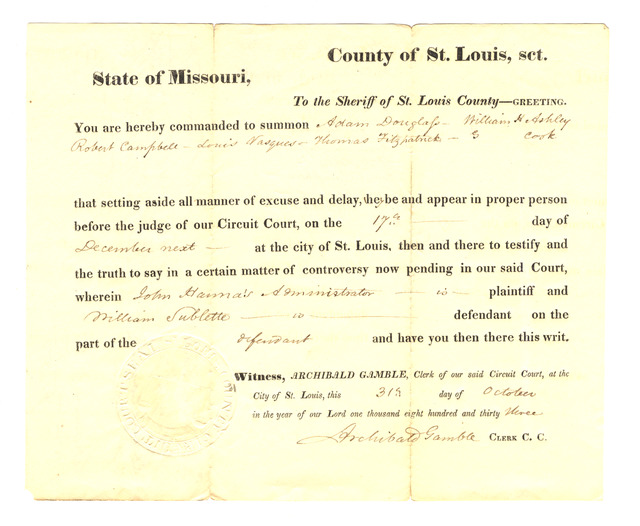 State of Missouri,
County of St. Louis, sct.
To the Sheriff of St. Louis County—GREETING.
You are hereby commanded to summon Adam Douglass - William H Ashley
Robert Campbell - Louis Vasques - Thomas Fitzpatrick - G Cook
that setting aside all manner of excuse and delay, they be and appear in proper person
before the judge of our Circuit Court, on the 17th day of
December next - at the city of St. Louis, then and there to testify and
the truth to say in a certain matter of controversy now pending in our said Court,
wherein John Hanna's Administrator - is - plaintiff and
William Sublette - is - defendant on the
part of the defendant and have you then there this writ.
Witness, ARCHIBALD GAMBLE, Clerk of our said Circuit Court, at the
City of St. Louis, this 31st day of October
in the year of our Lord one thousand eight hundred and thirty three
Archibald Gamble CLERK C. C.